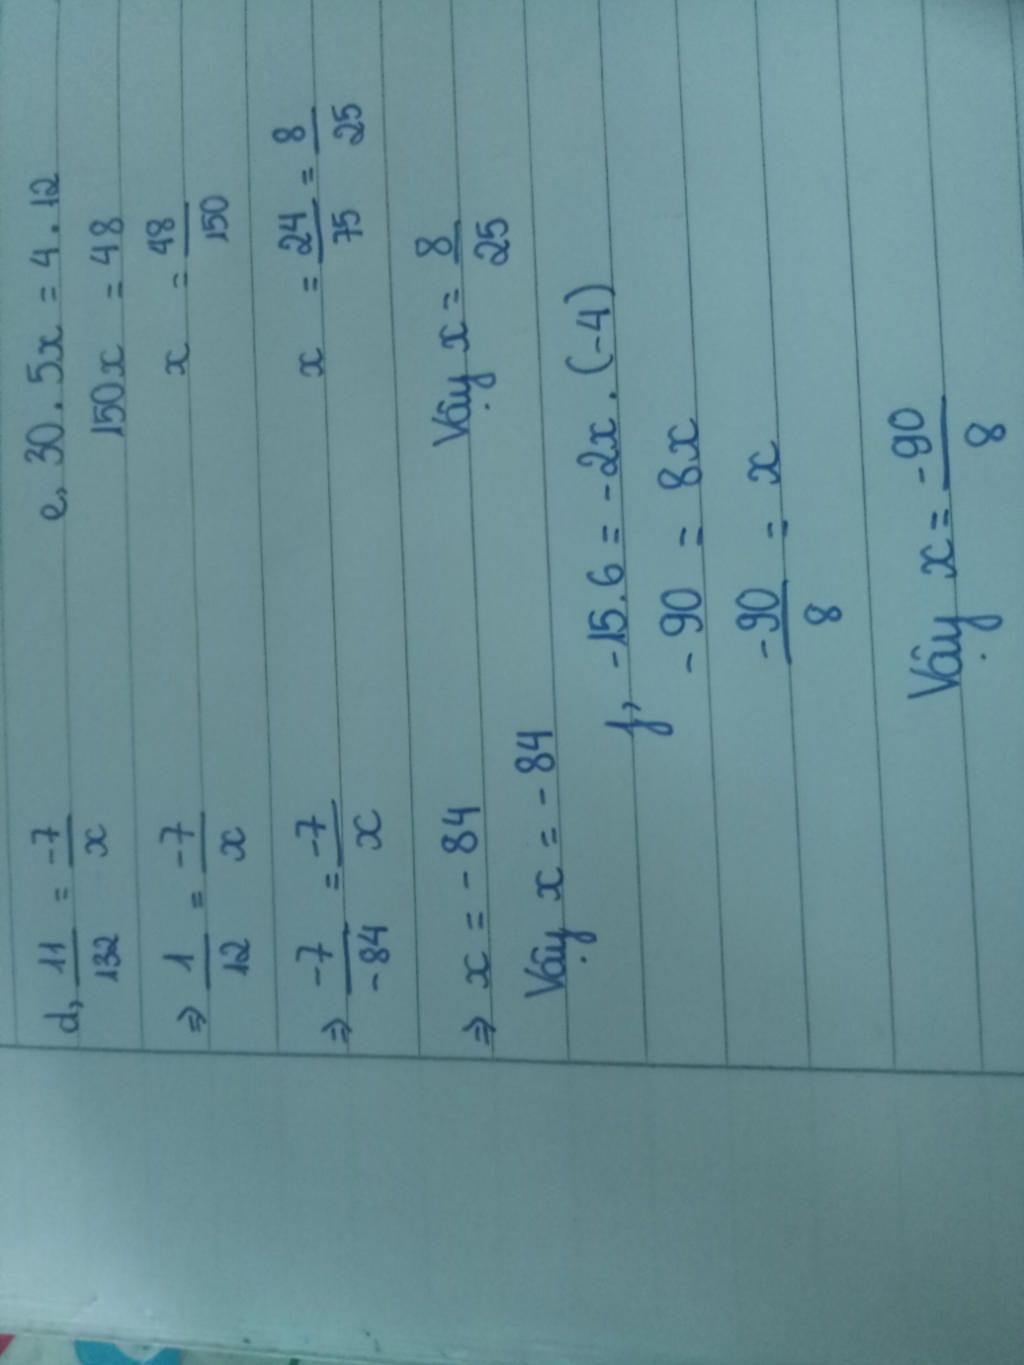 d, 11/132 = -7/x
⇒ 1/12 = -7/x
⇒ -7/-84 = -7/x
⇒ x = -84
Vậy x = -84
e, 30 . 5x = 4 . 12
150x = 48
x = 48/150
x = 24/75 = 8/25
Vậy x = 8/25
f, -15.6 = -2x . (-4)
-90 = 8x
-90/8 = x
Vậy x = -90/8